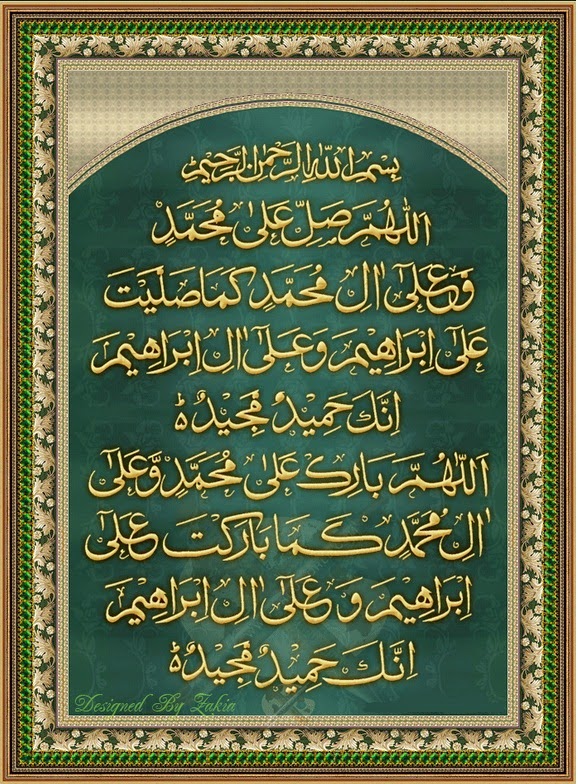 بِسْمِ اللهِ الرَّحْمٰنِ الرَّحِيْمِ
اَللّٰهُمَّ صَلِّ عَلٰى مُحَمَّدٍ
وَّعَلٰٓى اٰلِ مُحَمَّدٍ كَمَا صَلَّيْتَ
عَلٰٓى اِبْرَاهِيْمَ وَعَلٰٓى اٰلِ اِبْرَاهِيْمَ
اِنَّكَ حَمِيْدٌ مَّجِيْدٌ ۃ
اَللّٰهُمَّ بَارِكْ عَلٰى مُحَمَّدٍ وَّعَلٰٓى
اٰلِ مُحَمَّدٍ كَمَا بَارَكْتَ عَلٰٓى
اِبْرَاهِيْمَ وَعَلٰٓى اٰلِ اِبْرَاهِيْمَ
اِنَّكَ حَمِيْدٌ مَّجِيْدٌ ۃ
Designed By Zakia